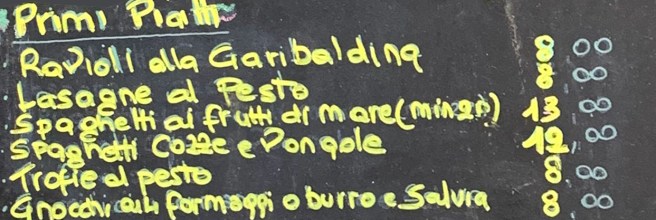 Primi Piatti
Ravioli alla Garibaldina 8,00
Lasagne al Pesto 8,00
Spaghetti ai frutti di mare (min 2P) 13,00
Spaghetti Cozze e Vongole 12,00
Trofie al pesto 8,00
Gnocchi ai 4 formaggi o burro e Salvia 8,00